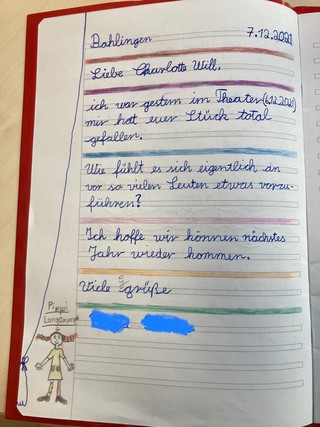 Dahlingen 7.12.2021
Liebe Charlotte Will.
ich war gestern im Theater (6.12.2021)
mir hat euer Stück total
gefallen.
Wie fühlt es sich eigentlich an
vor so vielen Leuten etwas vorzu-
führen?
Ich hoffe wir können nächstes
Jahr wieder kommen.
Viele grüße
Pippi
Langstrumpf